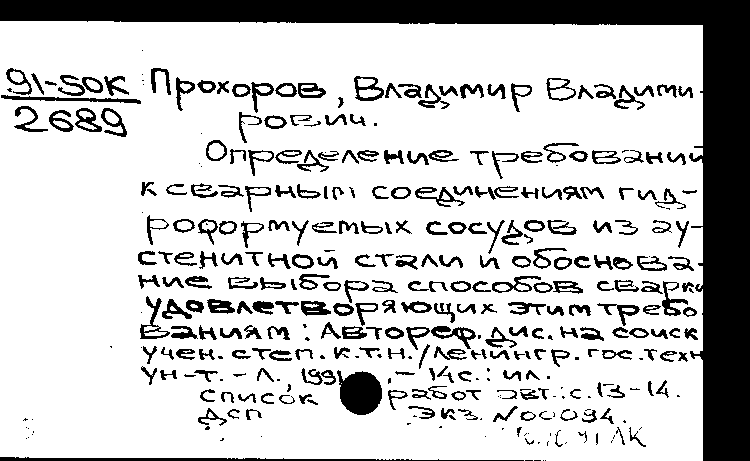 91-50К Прохоров, Владимир Владими-
2689 рович.
Определение требований
к сварным соединениям гид-
роформуемых сосудов из ау-
стенитной стали и обоснова-
ние выбора способов сварки
удовлетворяющих этим требо-
ваниям: Автореф. дис. на соиск
учен. степ. к.т.н./Ленингр. гос. техн
ун-т. - Л., 1991. - 14с.: ил.
список работ авт.: с. 13-14.
ДСП Экз. N 00094.